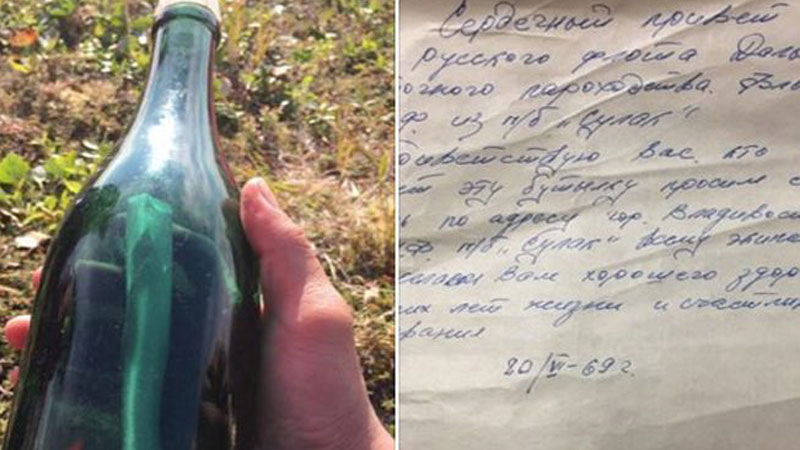 Сердечный привет
русского флота Даль
очного пароходства. Вль
ф. из п/б „Сулак"
ветствую Вас, кто
ет эту бутылку просим с
ь по адресу гор. Владивос
ф п/б „Сулак" всему экипа
елаем Вам хорошего здор
их лет жизни и счастли
вания
20/VI-69г.